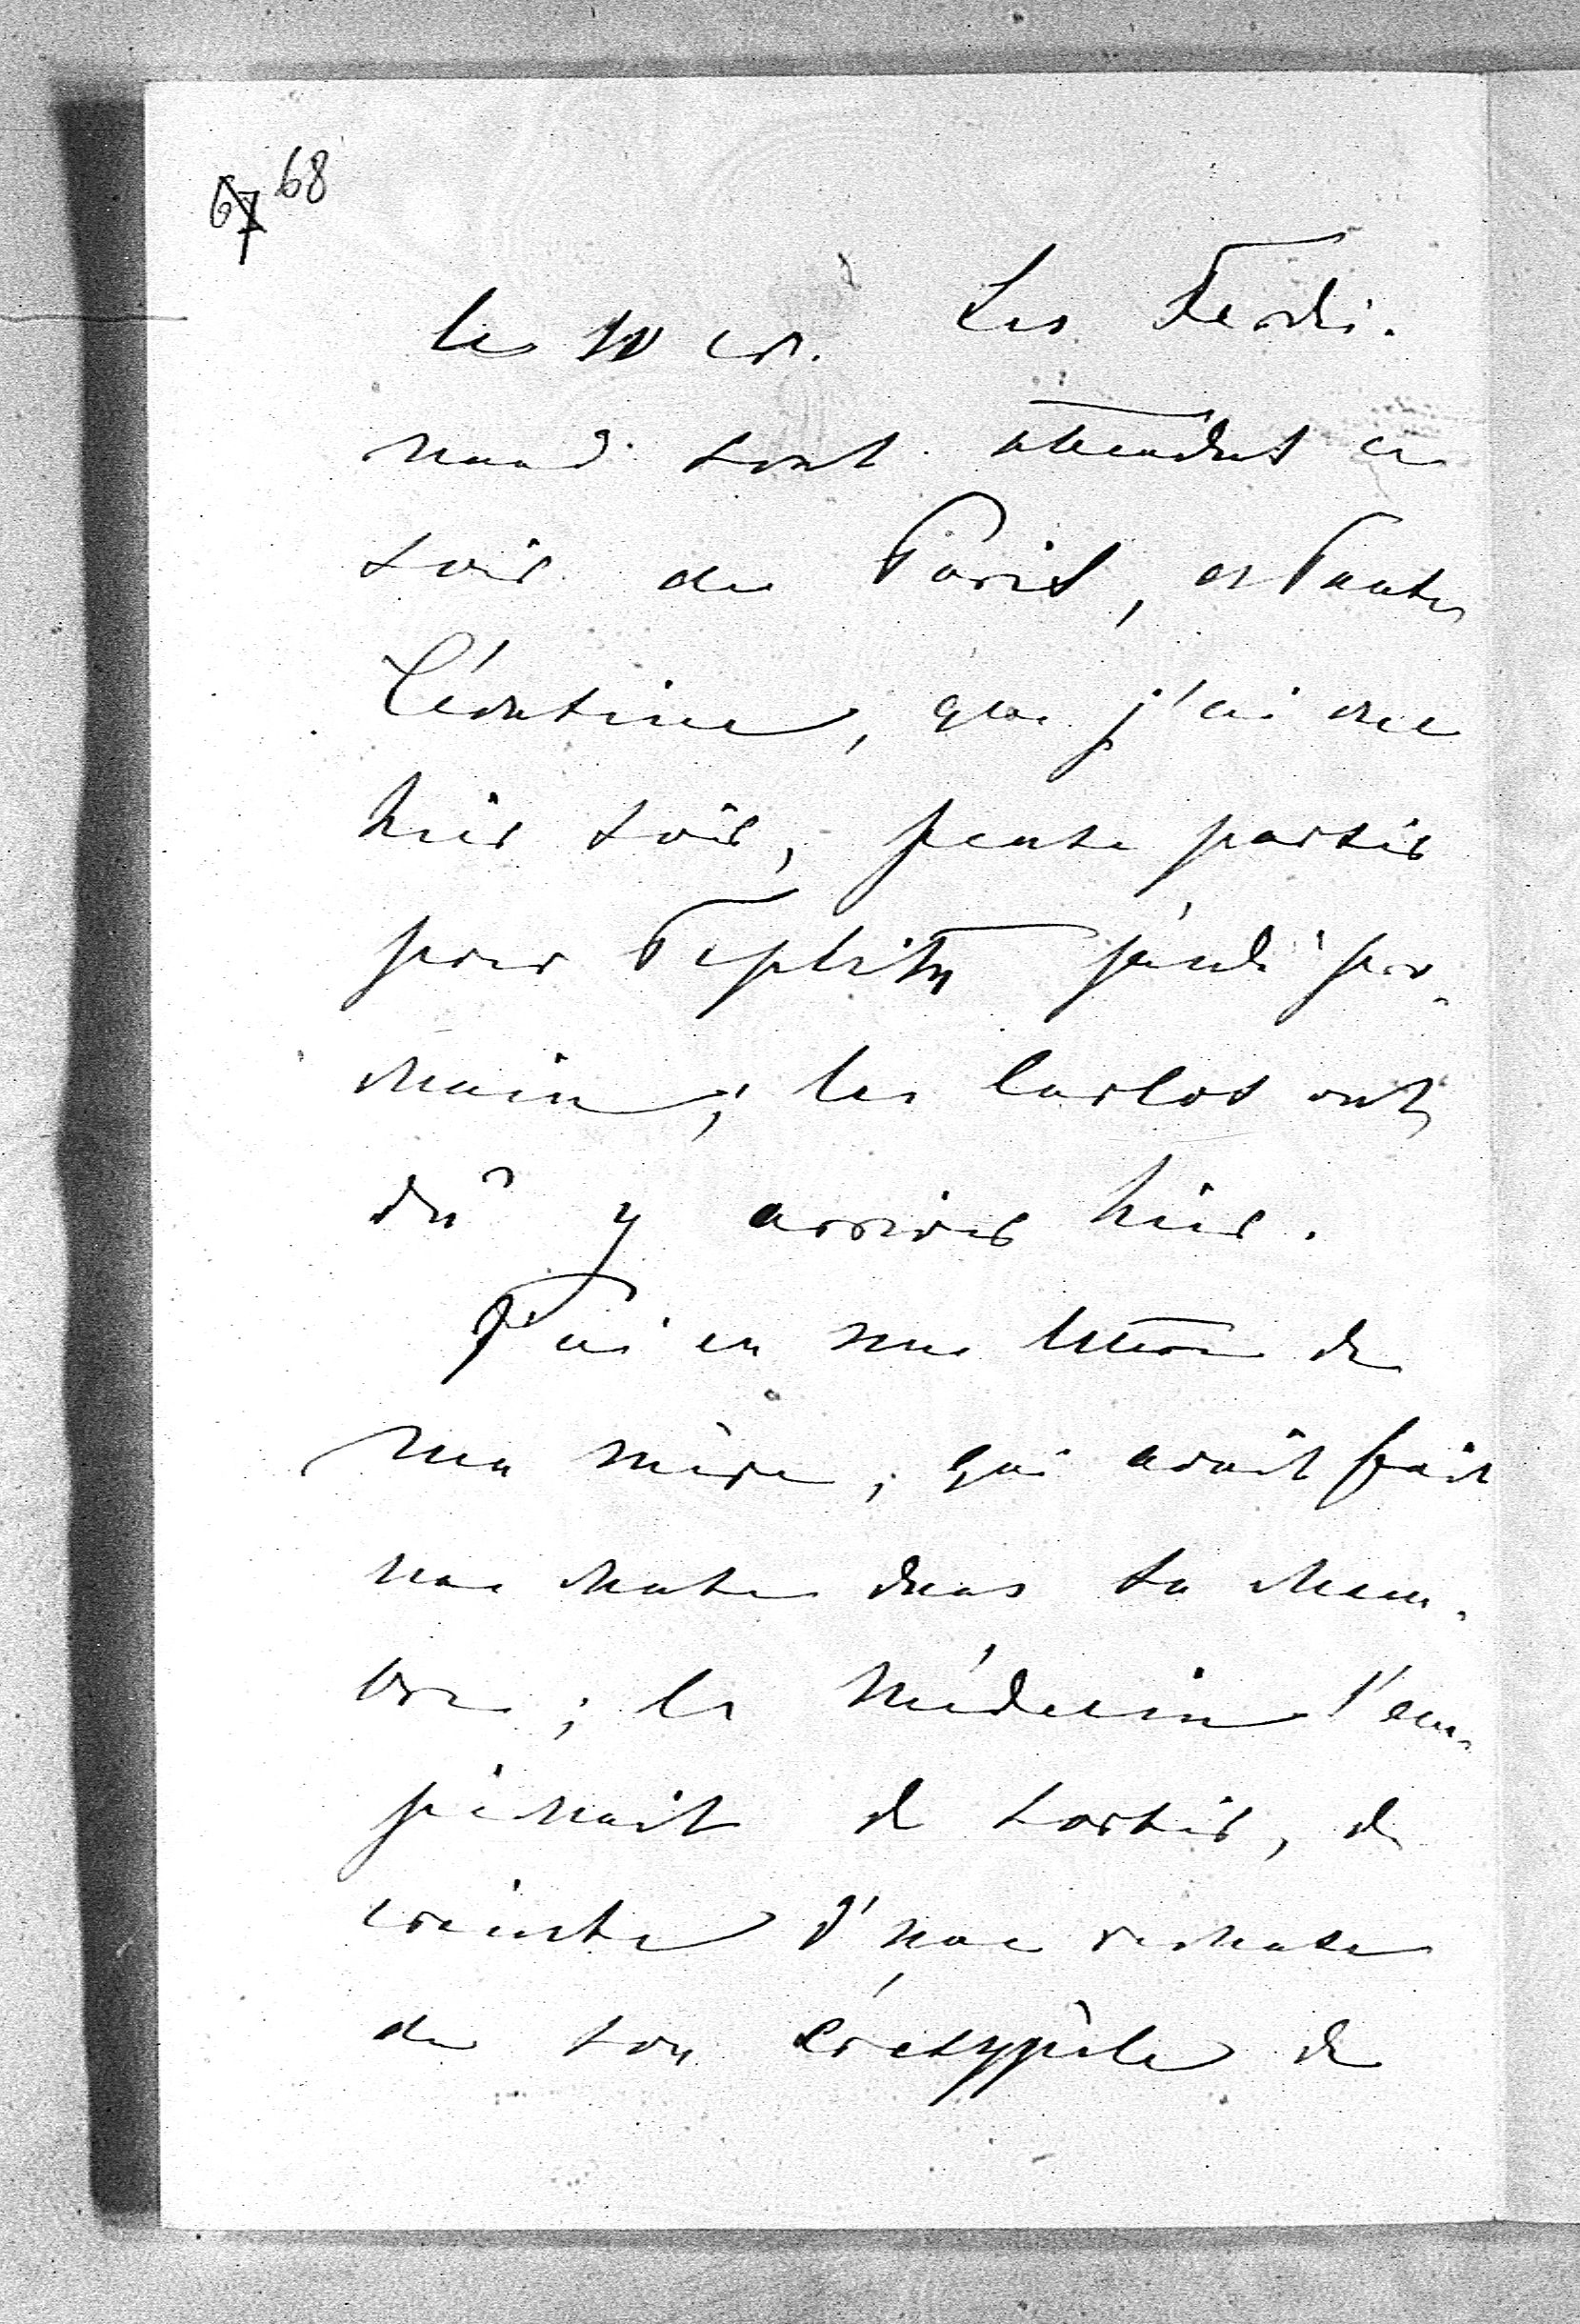 67 68
le 10 cr. Les Ferdi-
nand sont attendus ce
soir de Paris, et Tante
Léontine, que j'ai vue
hier soir, pense partir
pour Teplitz jeudi pro-
chain; les Carlos ont
dû y arriver hier.
J'ai eu une lettre de
ma mère, qui avait fait
une chute dans sa cham-
bre; le médecin l'em-
pêchait de sortir, de
crainte d'une rechute
de son érésypèle de